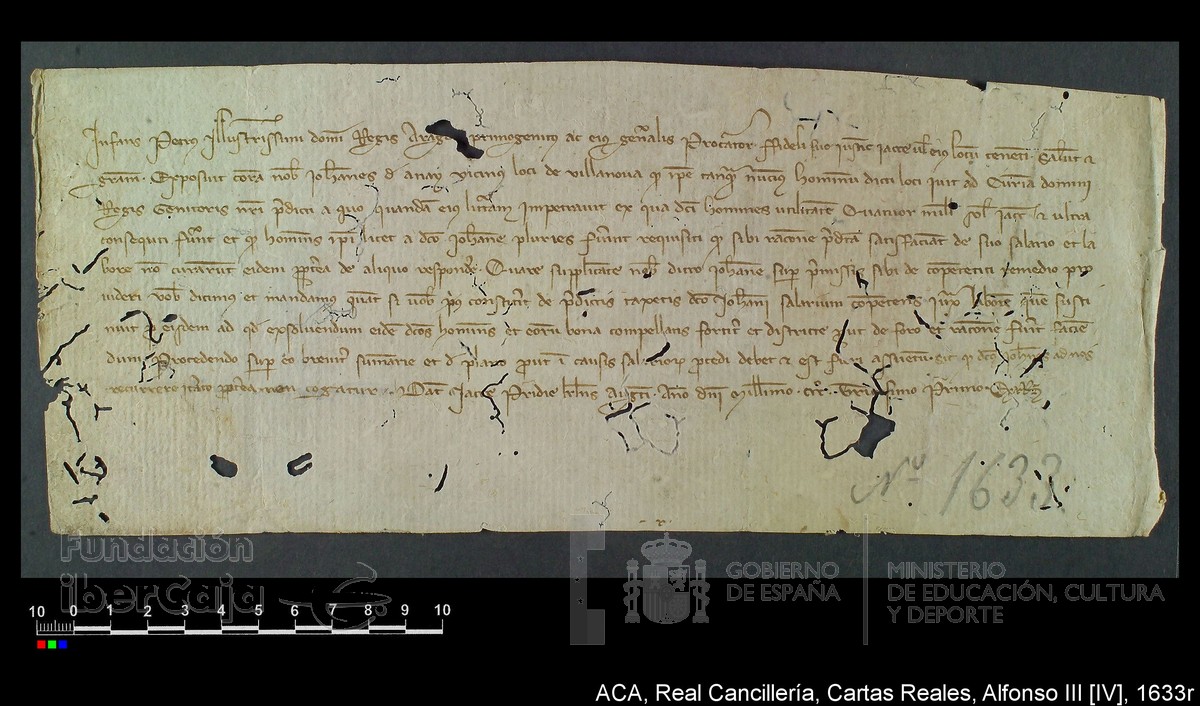 Infans Petrus Illustrissimi domini Regis Arago primogenitus ac eius generalis Procurator. Fideli suo iusticie iacce vel eius locum tenenti. Salutem et
gratiam. Exposuit coram nobis Iohannes d anay vicinus loci de villanova quod ipse tanquam nuncius hominum dicti loci ivit ad Curiam domini
Regis Genitoris nostri predicti a quo quandam eius litteram impetravit ex qua dicti homines utilitatem Quatuor mille solidos iaccenses et ultra
consequti fuerunt et quod homines ipsi licet a dicto Iohanne pluries fuerint requisiti quod sibi racione predicta satisfaciant de suo salario et la
bore non curarunt eidem propterea de aliquo respondere. Quare supplicante nobis dicto Iohanne super premissis sibi de competenti remedio pro
videri vobis dicimus et mandamus quatenus si vobis constiterit de predictis taxetis dicto Iohanni salarium competens iuxta laborem quem susti
nuit pro eisdem ad quod exsolvendum eidem dictos homines et eorum bona compellatis fortiter et districte prout de foro et racione fuerit facien
dum Procedendo super eo breviter summarie et de plano prout in causis salariorum procedi debet et est fieri assuetum. sic quod dictus Iohannes ad nos
recurrere iterato propterea non cogatur. Datum Iacce Pridie kalendas Augusti. Anno domini Millesimo CCC. Tricesimo Primo.
Nº 1633
Fundación
iberCaja
GOBIERNO
DE ESPAÑA
MINISTERIO
DE EDUCACIÓN, CULTURA
Y DEPORTE
10 0 1 2 3 4 5 6 7 8 9 10
ACA, Real Cancillería, Cartas Reales, Alfonso III [IV], 1633r